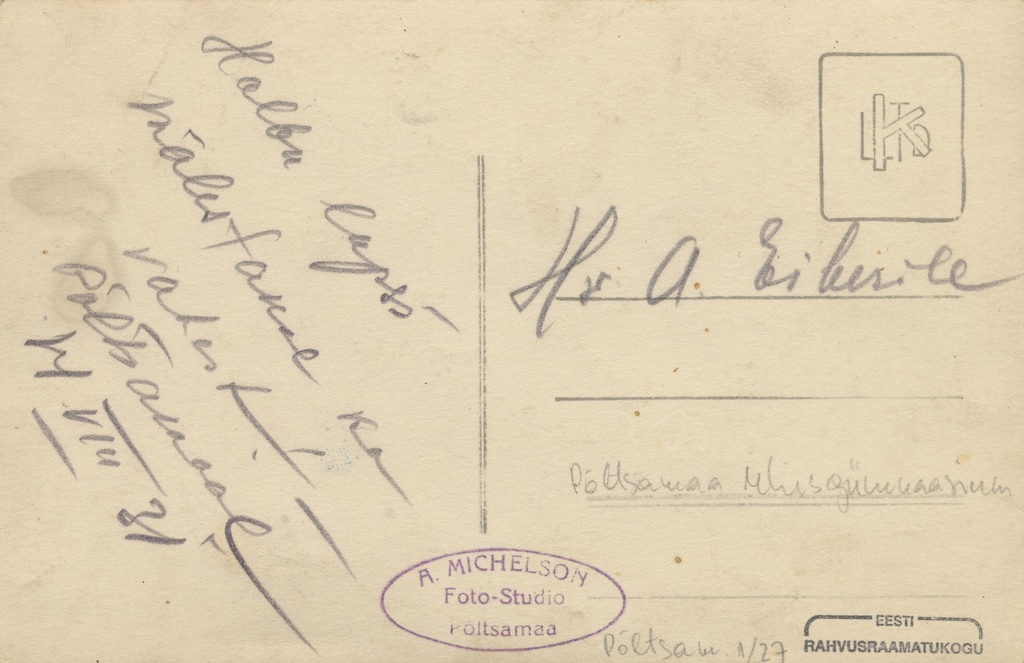 Halbu lapsi
mälestame ka
Põltsamaal
VIII 31
Hr A. Eiberile
Põltsamaa Ühisgümnaasium
A. MICHELSON
Foto-Studio
Põltsamaa
Põltsam. 1/27
EESTI
RAHVUSRAAMATUKOGU